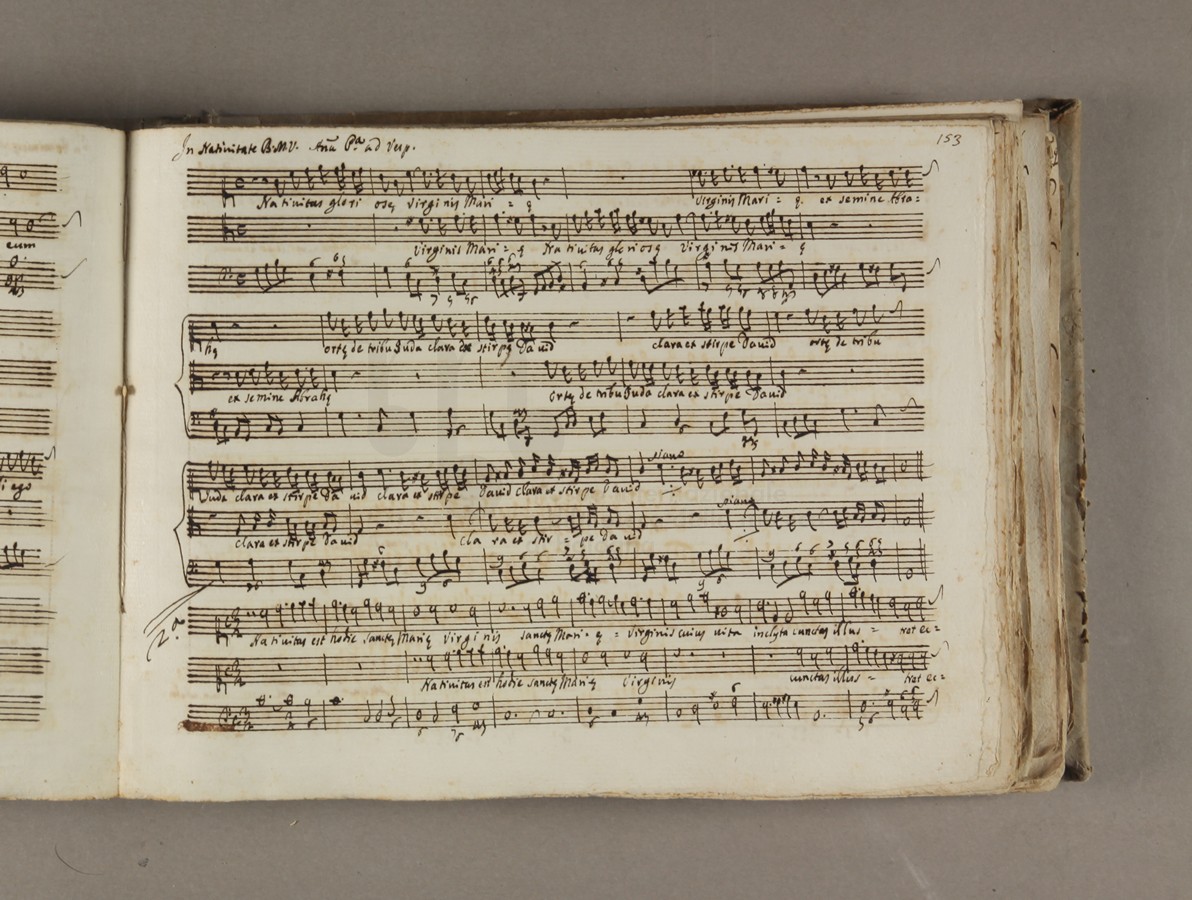 In Nativitate B.M.V. Ana Pa. ad Vesp.
153
eum
Nativitas glori osę Virginis Mari = ę Virginis Mari = ę. ex semine Abra =
Virginis Mari = ę Nativitas gloriosę Virginis Mari = ę
hę ortę de tribu Juda clara ex stirpę David clara ex stirpe David ortę de tribu
ex semine Abrahę Ortę de tribu Juda clara ex stirpe David
piano
Juda clara ex stirpe Da vid clara ex stirpe David clara ex stirpe David
ego
piano
clara ex stirpe David cla ra ex stir = pe Da vid
2.a
Nativitas est hodie sanctę Marię Virginis sanctę Mari = ę = Virginis cuius vita inclyta cunctas illus =
Nativitas est hodie sanctę Marię Virginis cunctas illus =